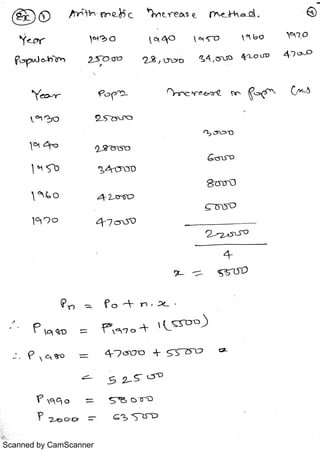 Ex ① Arithmetic increase method. ④
Year 1930 1940 1950 1960 1970
Population 25000 28,000 34,000 42000 47000
Year Popn increase in popn (n)
1930 25000
3000
1940 28000
6000
1950 34000
8000
1960 42000
5000
1970 47000
22000
4
x = 5500
Pn = Po + n.x.
∴ P1980 = P1970 + 1(5500)
∴ P1980 = 47000 + 5500
= 52500
P1990 = 58000
P2000 = 63500
Scanned by CamScanner